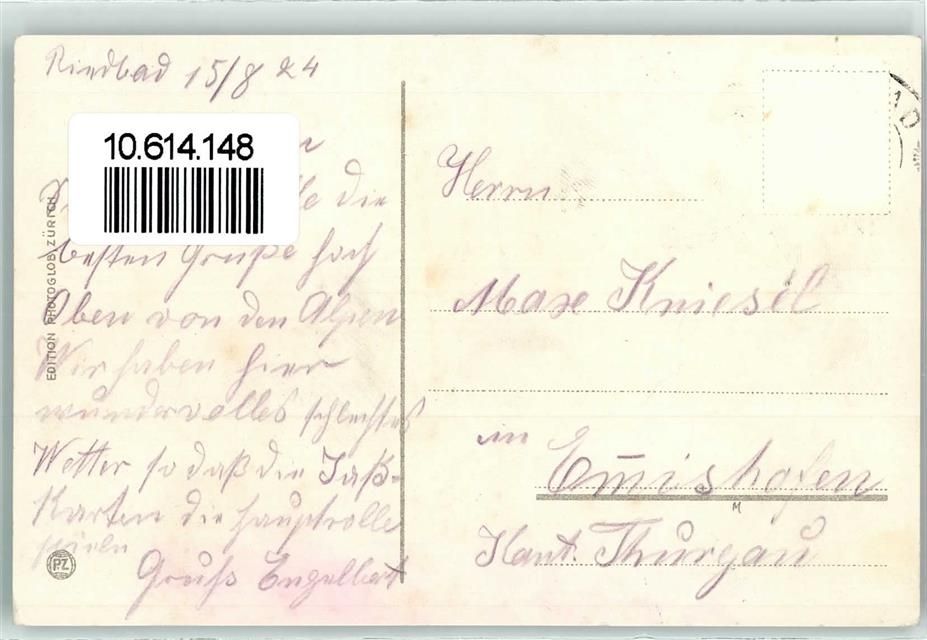 Riedbad 15/8 24
10.614.148
die
besten Grüße hoch
Oben von den Alpen
Wir haben hier
wundervolles schlechtes
Wetter so daß die Jaß-
Karten die Hauptrolle
spielen
Gruß Engelbert
EDITION PHOTOGLOB, ZÜRICH
PZ
Herrn
Max Kniesel
in
Em̅ishofen
M
Kant. Thurgau